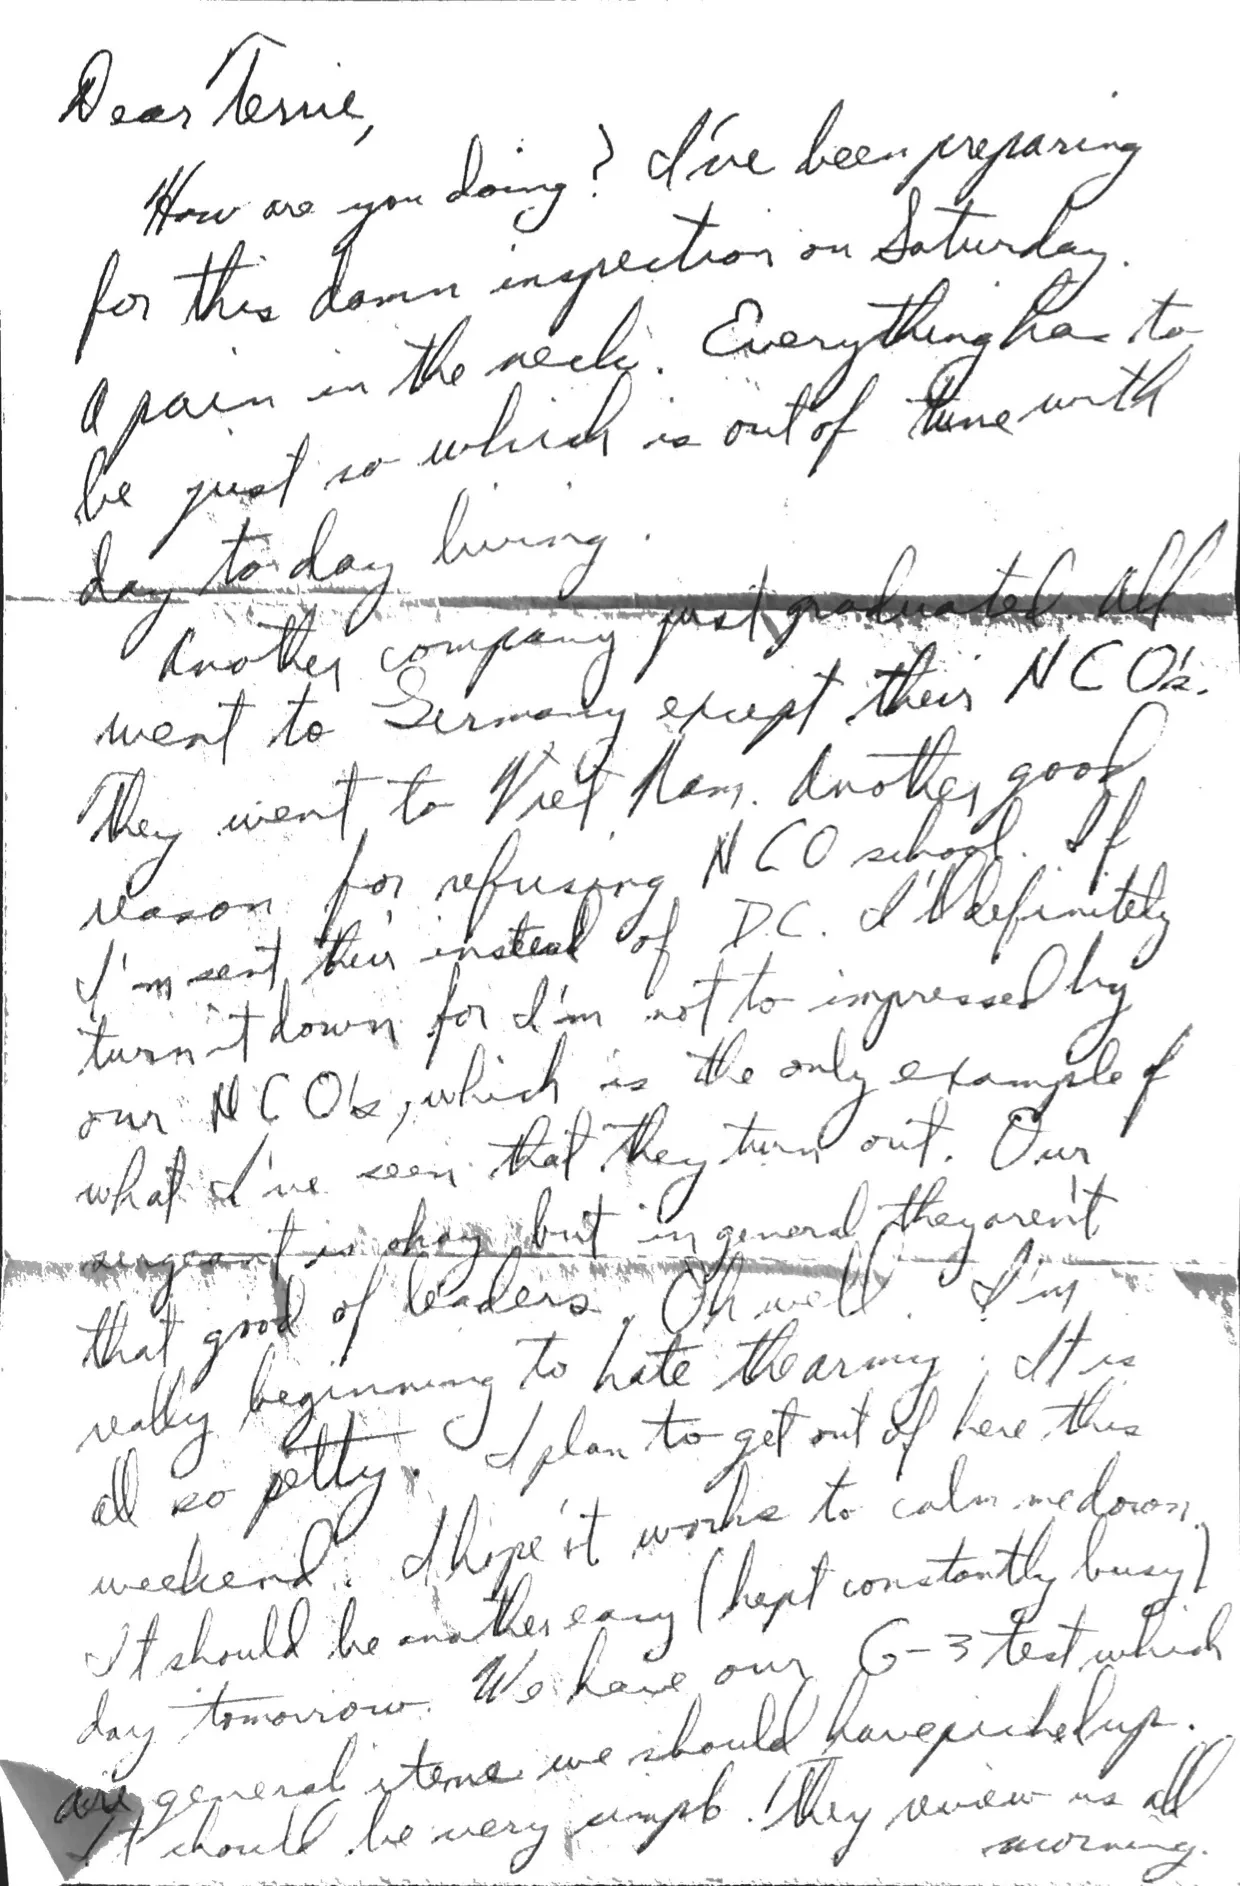 Dear Terrie,
How are you doing? I've been preparing
for this damn inspection on Saturday.
A pain in the neck. Everything has to
be just so which is out of tune with
day to day living.
Another company just graduated. All
went to Germany except their NCO's.
They went to Viet Nam. Another good
reason for refusing NCO school. If
I'm sent their instead of D.C. I'll definitely
turn it down for I'm not to impressed by
our NCO's, which is the only example of
what I've seen that they turn out. Our
sergeant is okay but in general they aren't
that good of leaders. Oh well. I'm
really beginning to hate the army. It is
all so petty. I plan to get out of here this
weekend. I hope it works to calm me down.
It should be another easy (kept constantly busy)
day tomorrow. We have our G-3 test which
are general items we should have picked up.
It should be very simple. They review us all
morning.